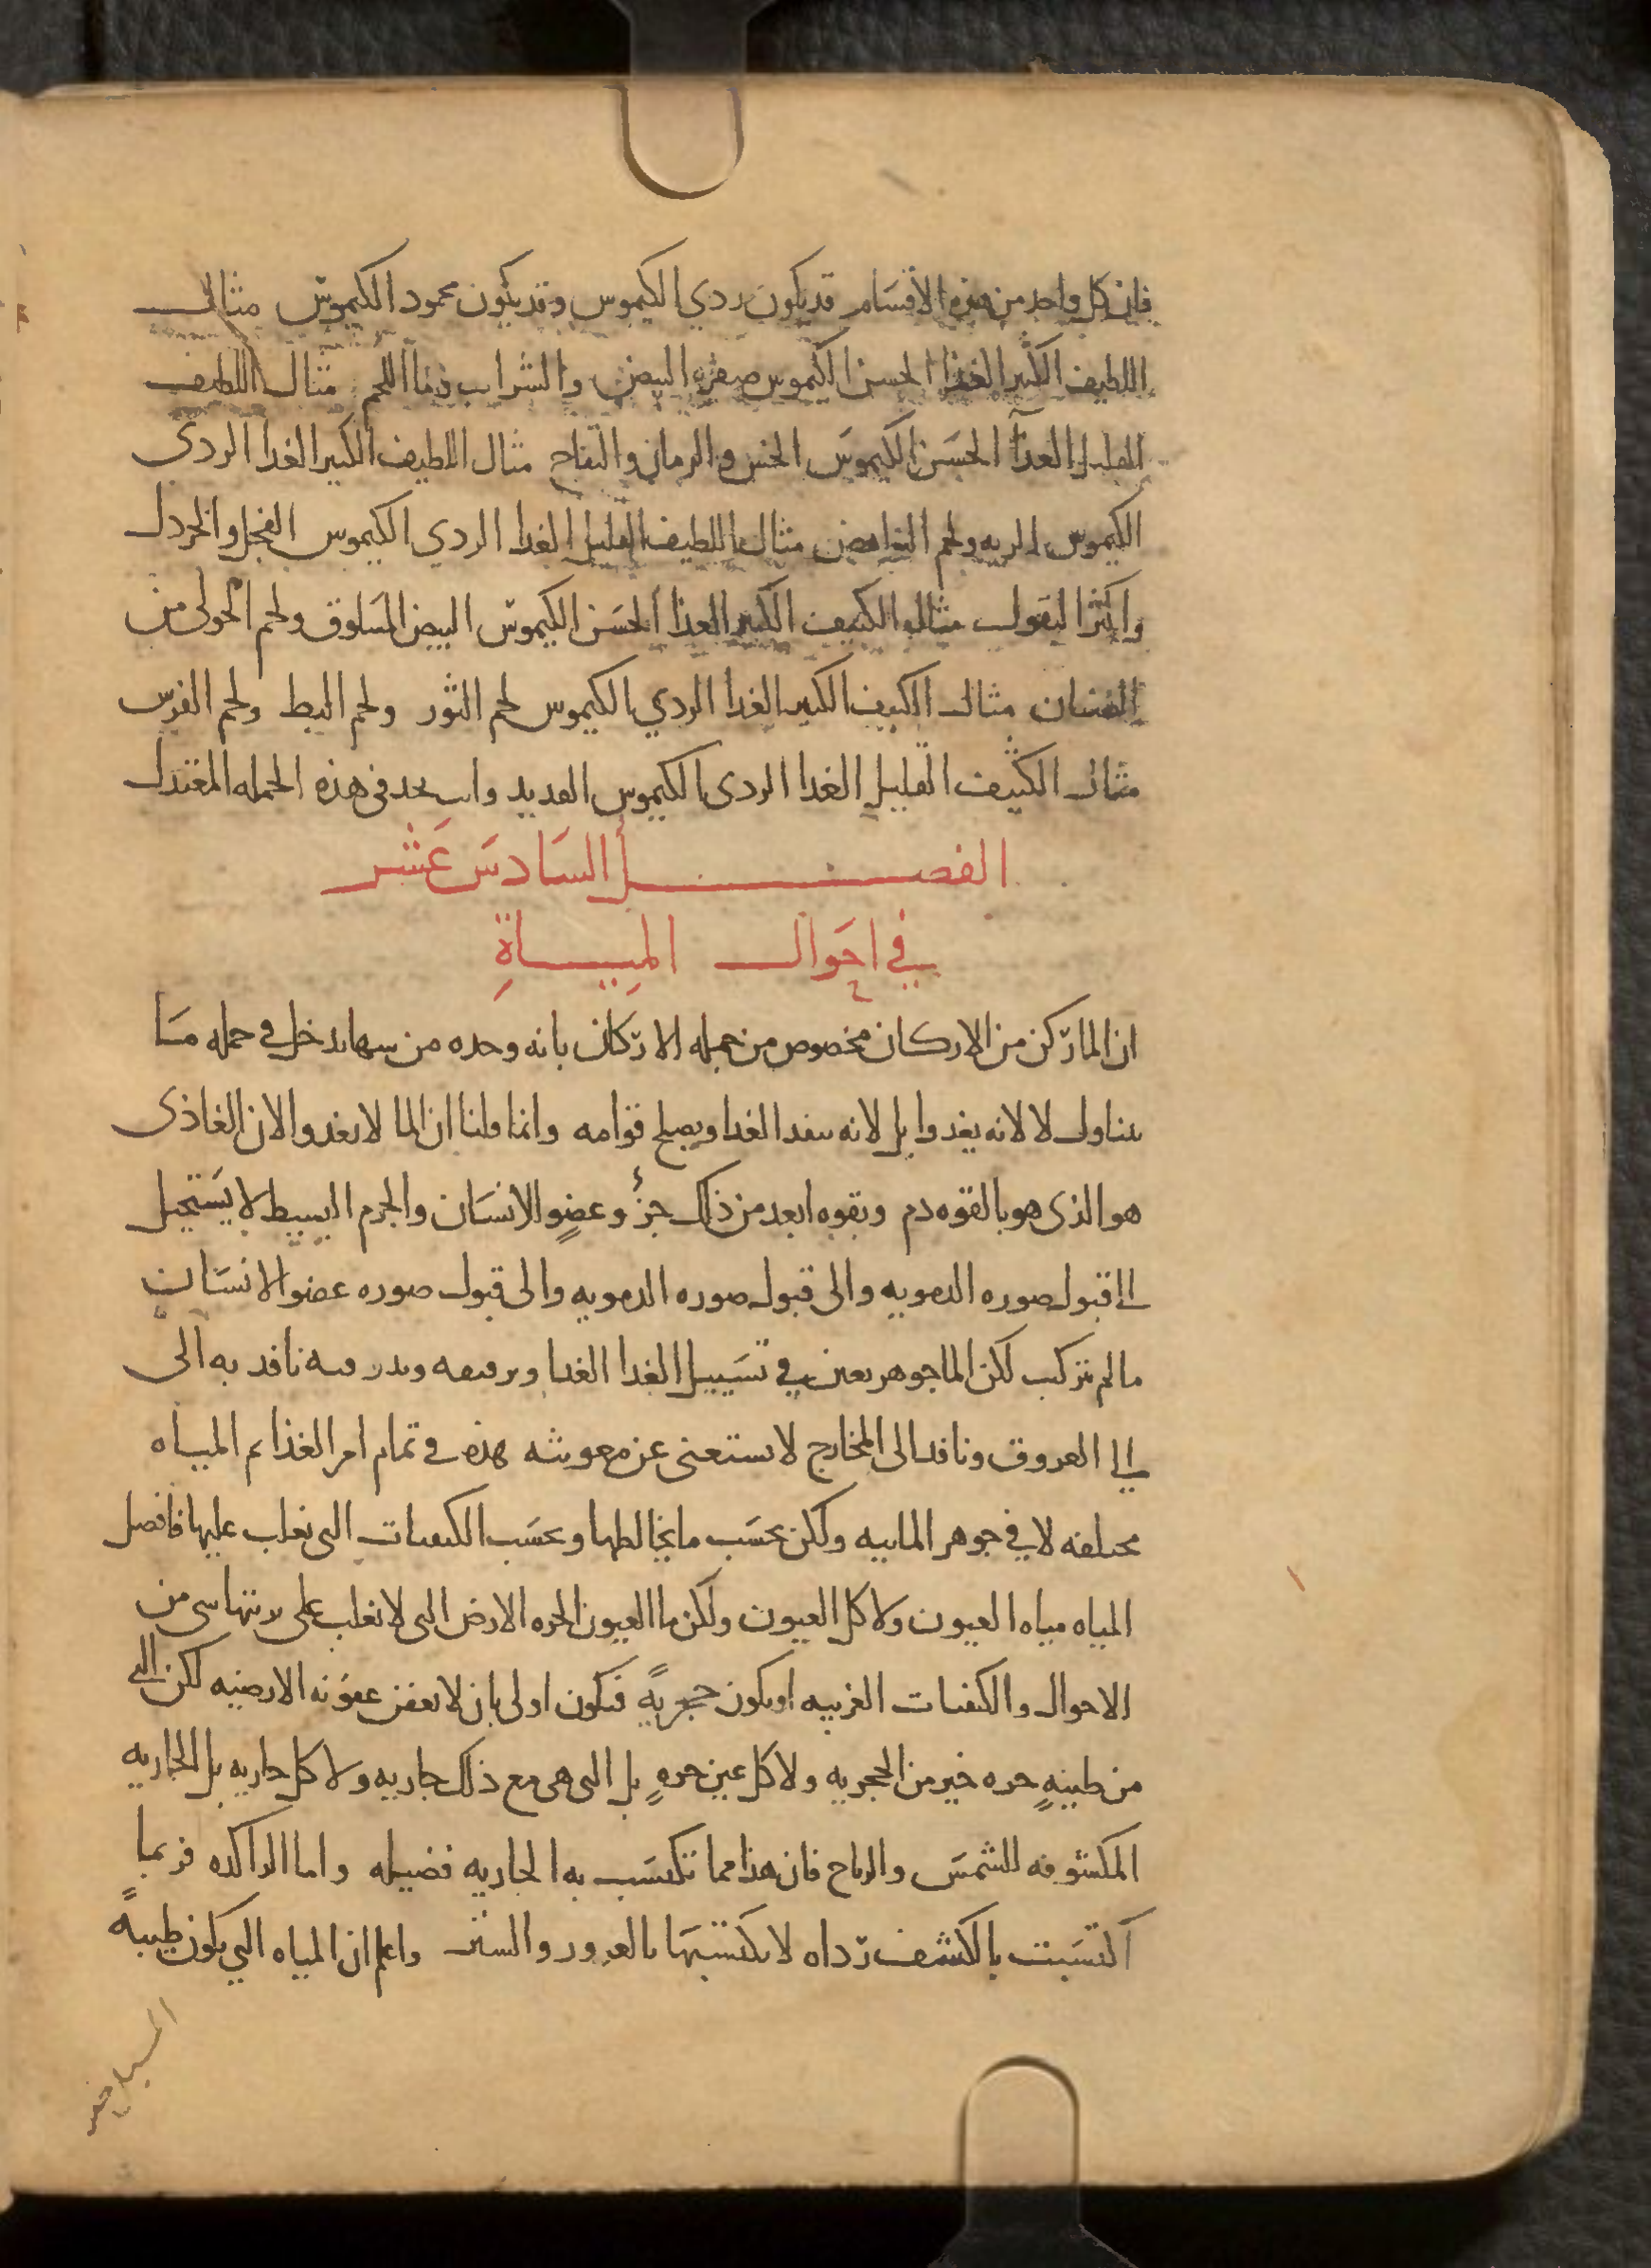 فان كل واحد من هذه الاقسام قد يكون ردي الكيموس وقد يكون محمود الكيموس مثال
اللطيف الكثير الغذا الحسن الكيموس صفره البيض والشراب وما اللحم مثال اللطيف
القليل الغذآ الحسَن الكيموسَ الخس والرمان والتفاح مثال اللطيف الكبير الغدا الردى
الكيموس الريه ولحم النواهض مثال اللطيف القليل الغدا الردي الكيموس الفجل والخردل
واكثر البقول مثال الكثيف الكثير الغذا الحسَن الكيموس البيض المسَلوق ولحم الحولى من
الضان مثال الكثيف الكبير الغدا الردي الكيموس لحم الثور ولحم البط ولحم الفرس
مثال الكثيف القليل الغدا الردى الكيموس القديد وانت تجد فى هذه الجمله المعتدل
الفصل السَادسَ عَشر
في احَوال المِياةِ
ان الما ركن من الاركان مخصوص من جمله الاركان بانه وحده من بينها يدخل في جمله مَا
يتناول لا لانه يغدوا بل لانه ينفد الغدا ويصلح قوامه وانما قلنا ان الما لا يغدوا لان الغاذى
هو الذى هو بالقوه دم وبقوه ابعد من ذلك جزؤ عضوٍ الانسَان والجرم البسيط لا يسَتحيل
الى قبول صوره الدمويه والى قبول صوره الدمويه والى قبول صوره عضو الانسَان
ما لم يتركب لكن الما جوهر يعين في تسَييل الغدا الغدا وترقيقه وبدرقته نافد به الى
الى العروق ونافدا الى المخارج لا يستغنى عن معونته هده في تمام امر الغذا ثم المياه
مختلفه لا في جوهر المائيه ولكن بحسَب ما يخالطها وبحسَب الكيفيات التى تغلب عليها فافضل
المياه مياه العيون ولا كل العيون ولكن ما العيون الحره الارض التى لا تغلب على تربتها شى من
الاحوال والكيفيات الغريبه او يكون حجريهً فتكون اولى بان لا تعفن عفونه الارضيه لكن التى
من طينهٍ حره خير من الحجريه ولا كل عين حرهٍ بل التى هى مع ذلك جاريه ولا كل جاريه بل الجاريه
المكشوفه للشمسَ والرياح فان هذا مما تكتسَب به الجاريه فضيله واما الراكده فربما
اكتسَبت بالكشف رداه لا تكتسبَها بالغور والستر واعلم ان المياه التي يكون طيبهً
المسيل خير